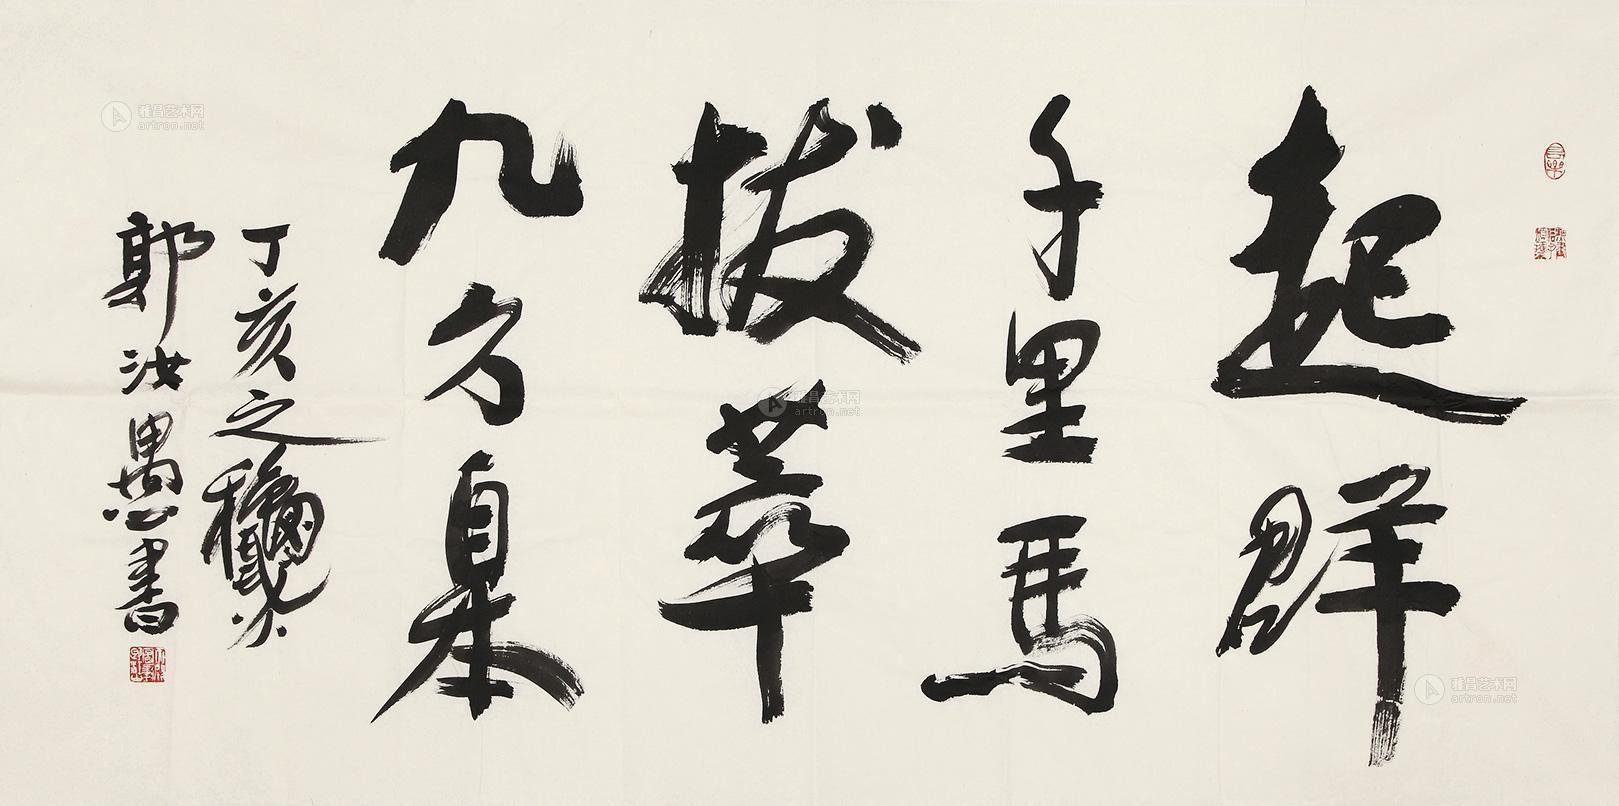 起群
千里馬
拔萃
九方皋
丁亥之龝
郭汝愚書
雅昌艺术网
artron.net
雅昌艺术网
artron.net
雅昌艺术网
artron.net